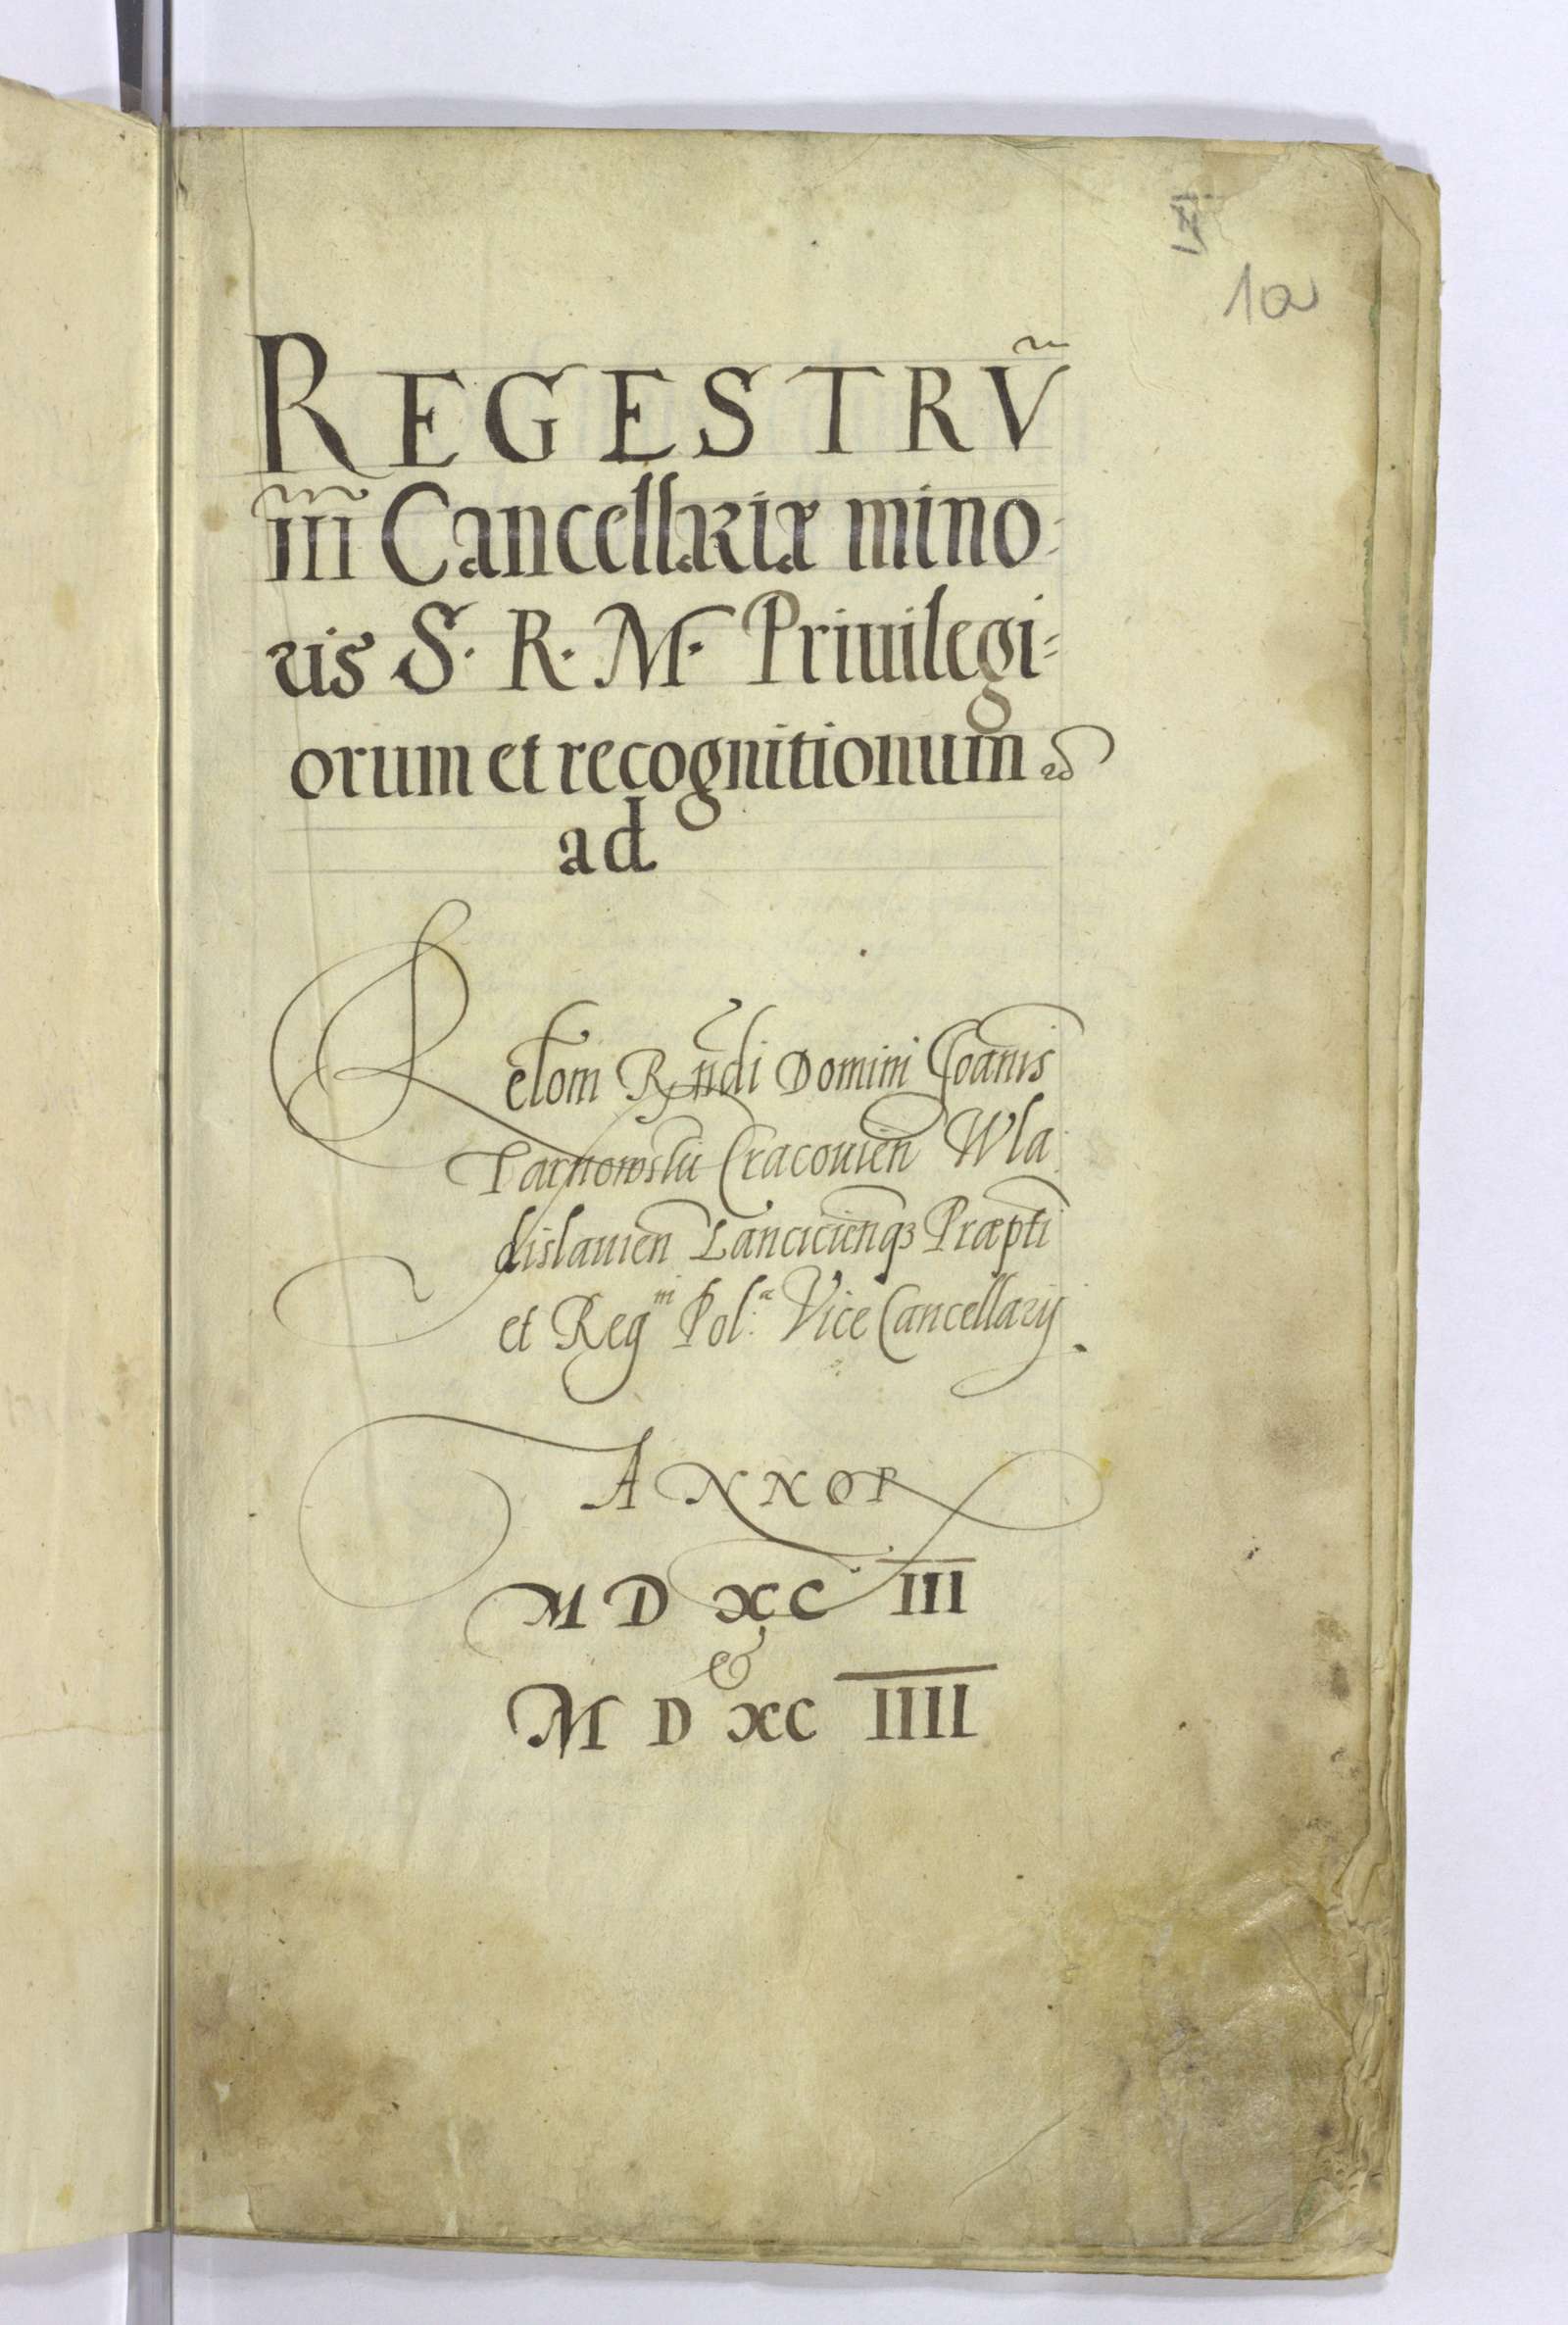 1a
REGESTRṼ
III Cancellariæ mino-
ris S. R. M. Priuilegi-
orum et recognitionum
ad
Relõm Rñdi Domini Joañis
Tarnowskii Cracouieñ Wla
dislauieñ Lancicieñqꝫ Præpti
et Regni Pol: Vice Cancellarÿ.
ANNOR
MD XC III
&
MD XC IIII